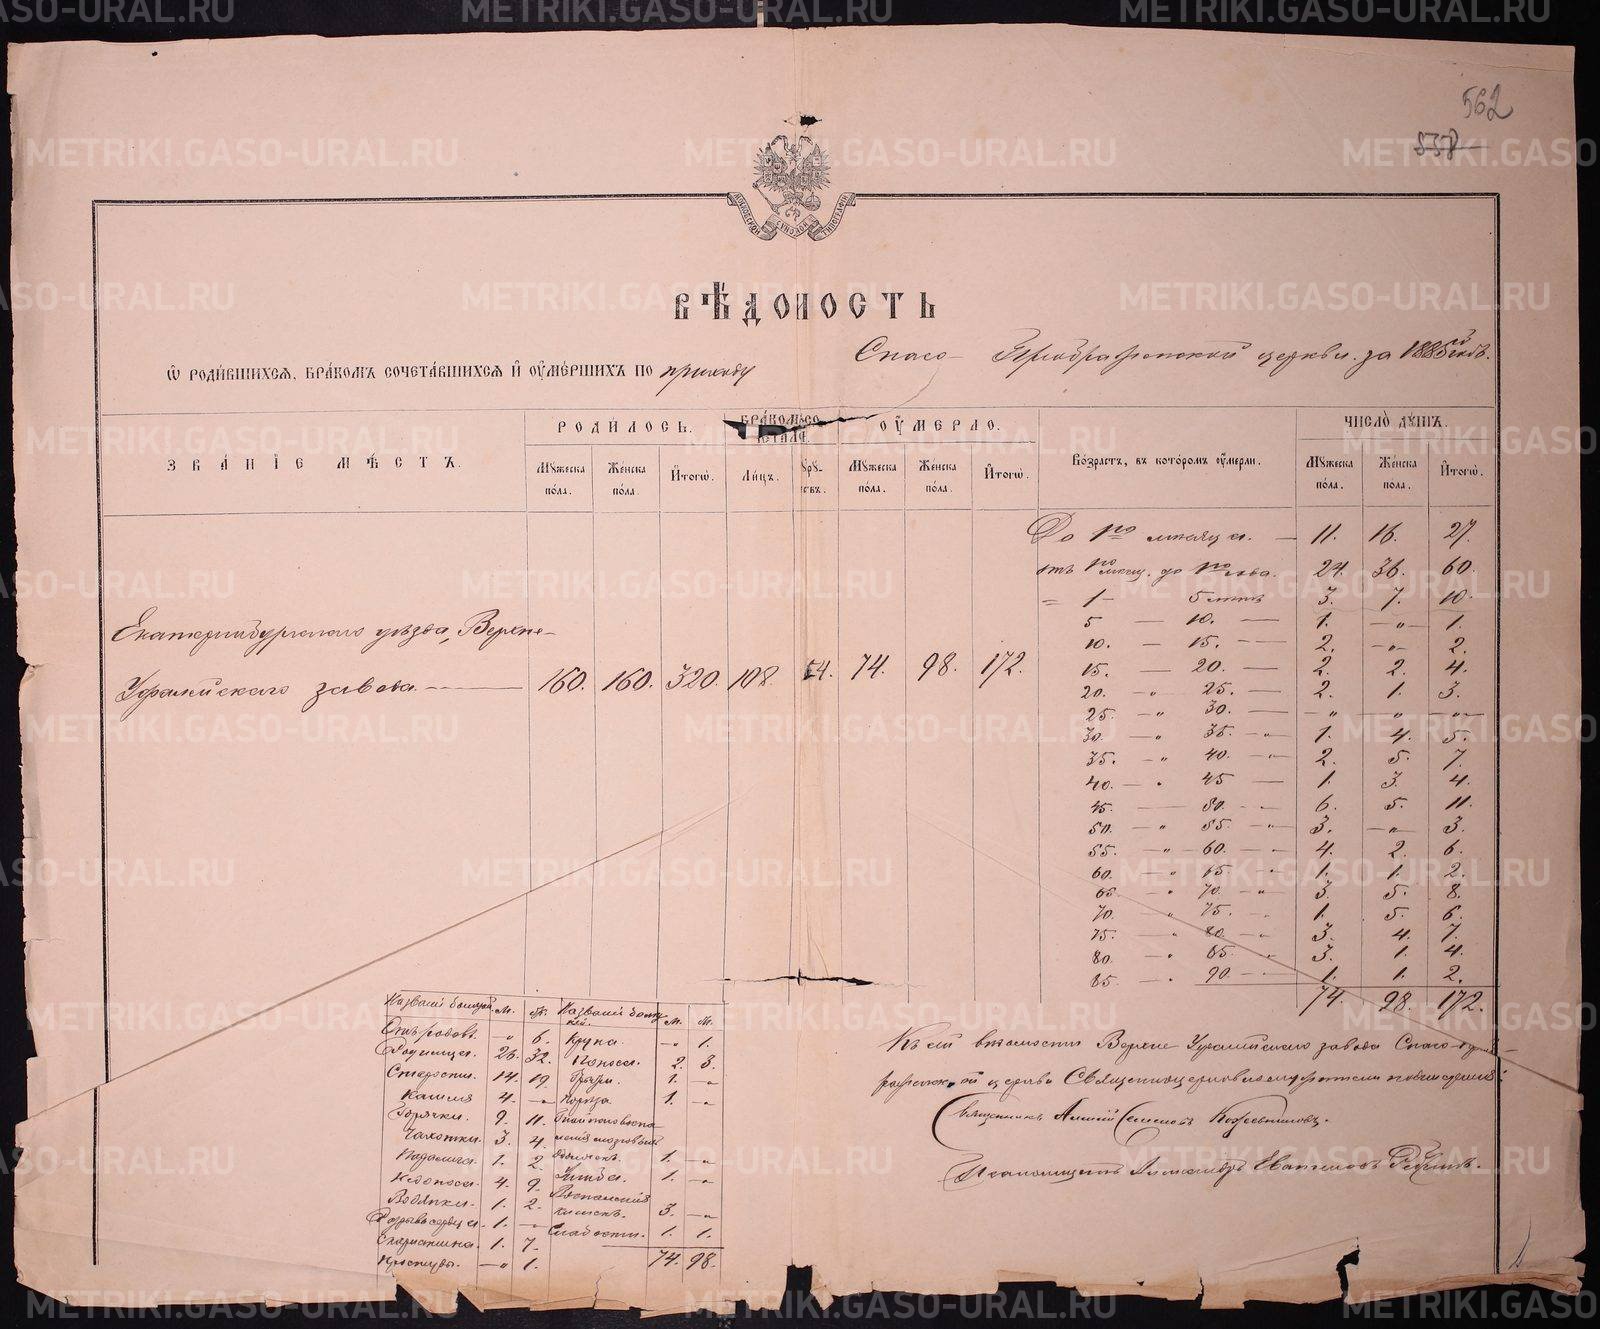 562
558
МОСКОВСКОЙ СѴНОДАЛ ТИПОГРАФІИ
ВѢДОМОСТЬ
Спасо-Преображенской церкви. за 1885й годъ.
Ѡ РОДИВШИХСЯ, БРАКОМЪ СОЧЕТАВШИХСЯ И ОУМЕРШИХЪ ПО приходу
ЗВАНІЕ МѢСТЪ. РОДИЛОСЬ. БРАКОМЪ СОЧЕТАЛ. ОУМЕРЛО. Возрастъ, въ которомъ оумерли. ЧИСЛО ДУШЪ.
Мужеска пола. Женска пола. Итогѡ. Лицъ. Мужеска пола. Женска пола. Итогѡ. Мужеска пола. Женска пола. Итогѡ.
До 1го мѣсяца. — 11. 16. 27.
отъ 1го мѣсяц. до 1го года. 24. 36. 60.
= 1 — 5 лѣтъ 3. 7. 10.
5 — 10. — 1. —„— 1.
10. — 15. — 2. —„— 2.
15. — 20. — 2. 2. 4.
20. —„ 25. — 2. 1. 3.
25. —„ 30. — —„— —„— —„—
30. —„ 35. —„ 1. 4. 5.
35. —„ 40. —„ 2. 5. 7.
40. —„ 45 — 1. 3. 4.
45. — 50. —„ 6. 5. 11.
50. —„ 55. —„ 3. —„— 3.
55. —„ 60. —„ 4. 2. 6.
60. —„ 65. —„ 1. 1. 2.
65. —„ 70. —„ 3. 5. 8.
70. —„ 75. —„ 1. 5. 6.
75. —„ 80. —„ 3. 4. 7.
80. —„ 85. —„ 3. 1. 4.
85. —„ 90. —„ 1. 1. 2.
74. 98. 172.
Екатеринбургскаго уѣзда, Верхне-
Уфалейскаго завода — 160. 160. 320. 108. 54. 74. 98. 172.
Къ сей вѣдомости Верхне Уфалейскаго завода Спасо-
церкви Священно
Священникъ Алексій Семеновъ Кожевниковъ.
Псаломщикъ Александръ
Названіе болѣзней. м. ж. Названіе болѣзней. м. ж.
Отъ родовъ. —„ 6. Крупа. —„ 1.
Родимца. 26. 32. Поноса. 2. 3.
Старости. 14. 19. 1. —„
Кашля 4. —„ 1. —„
Горячки. 9. 11.
Чахотки. 3. 4. 1. —„
1. 2. 1. —„
4. 9.
Водянки. 1. 2. 3. —„
1. —„ Слабости. 1. 1.
Скарлатина. 1. 7.
—„ 1. 74. 98.
METRIKI.GASO-URAL.RU